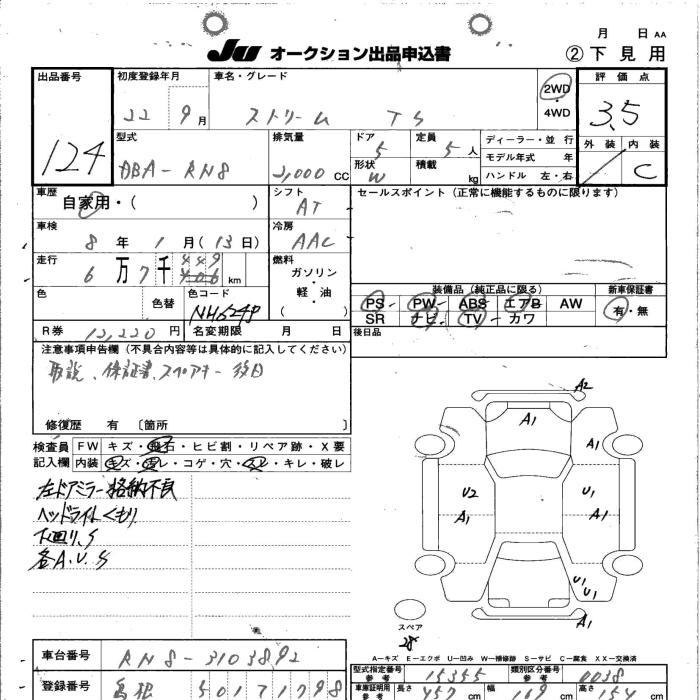 月 日 AA
JU オークション出品申込書 ② 下見用
出品番号 初度登録年月 車名・グレード 2WD・4WD 評価点
124 22 9月 ストリーム TS 3.5
型式 排気量 ドア 定員 ディーラー・並行 外装 内装
DBA-RN8 2,000CC 5 5人 モデル年式 年
形状 積載 C
W kg ハンドル 左・右
車歴 シフト セールスポイント(正常に機能するものに限ります)
自家用・( ) AT
車検 冷房
8年 1月(13日) AAC
走行 燃料
6万7千449 406 km ガソリン・軽油( )
装備品(純正品に限る) 新車保証書
色 色替 色コード PS PW ABS エアB AW 有・無
NH624P SR ナビ TV カワ
R券 12,220円 名変期限 月 日 後日品
注意事項申告欄(不具合内容等は具体的に記入してください)
取説、保証書、スペアキー 後日
修復歴 有 〔箇所 〕
検査員記入欄 FW キズ・飛石・ヒビ割・リペア跡・X要
内装 キズ・汚レ・コゲ・穴・スレ・キレ・破レ
左ドアミラー格納不良
ヘッドライトくもり
下回り、S
各A.U.S
A2
A1
A1
U2 U1
A1 A1
U1
U1
A1
スペア
A-キズ E-エクボ U-凹み W-補修跡 S-サビ C-腐食 XX-交換済
車台番号 RN8-3103892
型式指定番号 参考 15355 類別区分番号 参考 0038
登録番号 島根 501
車庫証明用 参考 長さ 457cm 幅 cm 高さ cm